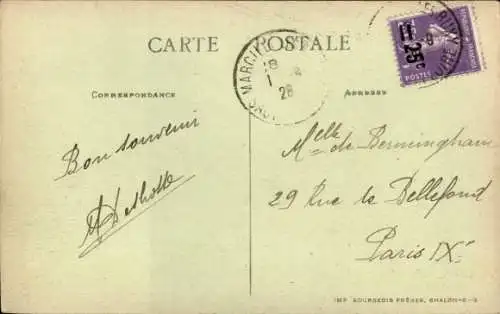 CARTE POSTALE
CORRESPONDANCE
ADRESSES
= 25c
28
Bon souvenir
Melle de Bermingham
29 Rue de Bellefond
Paris IXe
IMP. BOURGEOIS FRÈRES, CHALON-S-S